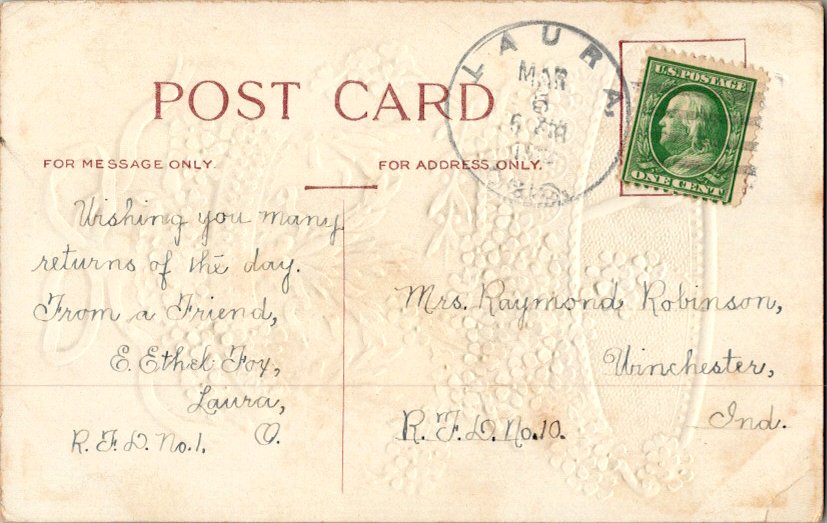 POST CARD
FOR MESSAGE ONLY.
FOR ADDRESS ONLY.
LAURA,
MAR
5
U.S. POSTAGE
ONE CENT
Wishing you many
returns of the day.
From a Friend,
E. Ethel Fox,
Laura,
O.
R. F. D. No. 1.
Mrs. Raymond Robinson,
Winchester,
Ind.
R. F. D. No. 10.